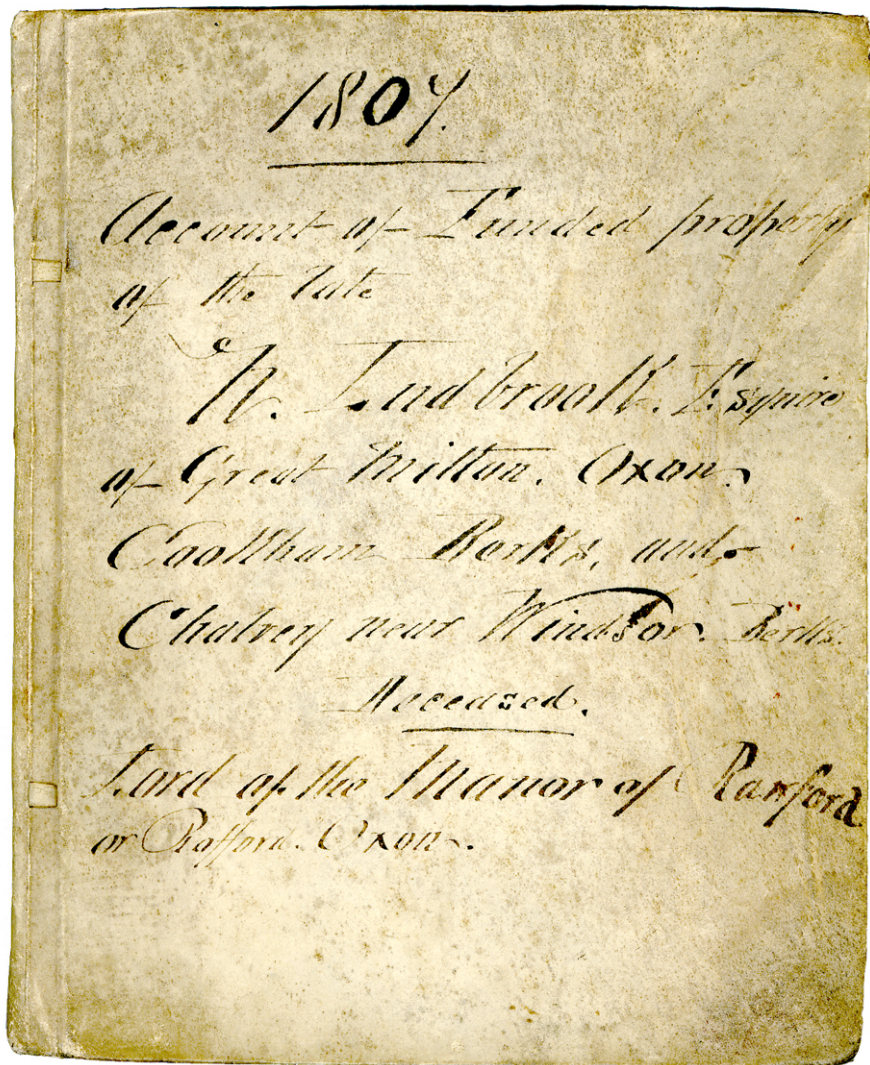 1807.
Account of Funded property
of the late
N. Ludbrook. Esquire
of Great Milton. Oxon.
Cookham Berks, and
Chalvey near Windsor. Berks.
Deceased.
Lord of the Manor of
or Oxon.